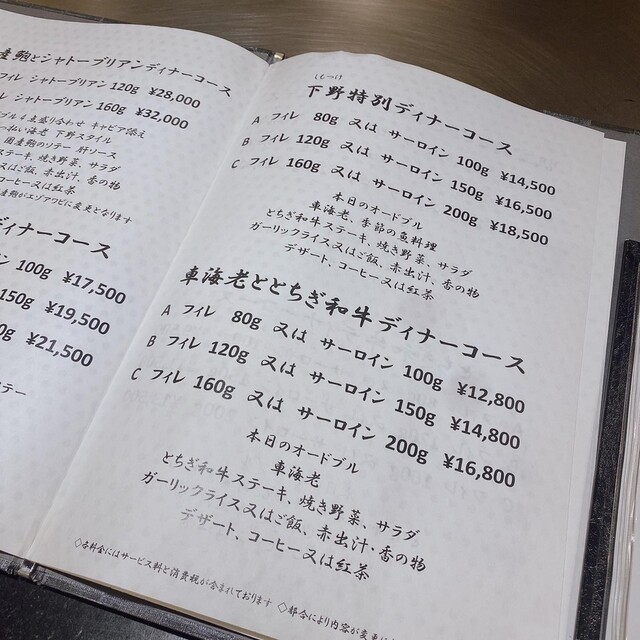 産鮑とシャトーブリアンディナーコース
フィレ シャトーブリアン 120g ¥28,000
シャトーブリアン 160g ¥32,000
ブル4点盛り合わせ キャビア添え
っ払い海老 下野スタイル
国産鮑のソテー 肝ソース
ステーキ、焼き野菜、サラダ
又はご飯、赤出汁、香の物
コーヒー又は紅茶
産鮑がエゾアワビに変更となります
ディナーコース
イン 100g ¥17,500
150g ¥19,500
0g ¥21,500
テー
しもつけ
下野特別ディナーコース
A フィレ 80g 又は サーロイン 100g ¥14,500
B フィレ 120g 又は サーロイン 150g ¥16,500
C フィレ 160g 又は サーロイン 200g ¥18,500
本日のオードブル
車海老、季節の魚料理
とちぎ和牛ステーキ、焼き野菜、サラダ
ガーリックライス又はご飯、赤出汁、香の物
デザート、コーヒー又は紅茶
車海老ととちぎ和牛ディナーコース
A フィレ 80g 又は サーロイン 100g ¥12,800
B フィレ 120g 又は サーロイン 150g ¥14,800
C フィレ 160g 又は サーロイン 200g ¥16,800
本日のオードブル
車海老
とちぎ和牛ステーキ、焼き野菜、サラダ
ガーリックライス又はご飯、赤出汁・香の物
デザート、コーヒー又は紅茶
◇各料金にはサービス料と消費税が含まれております ◇都合により内容が変更に